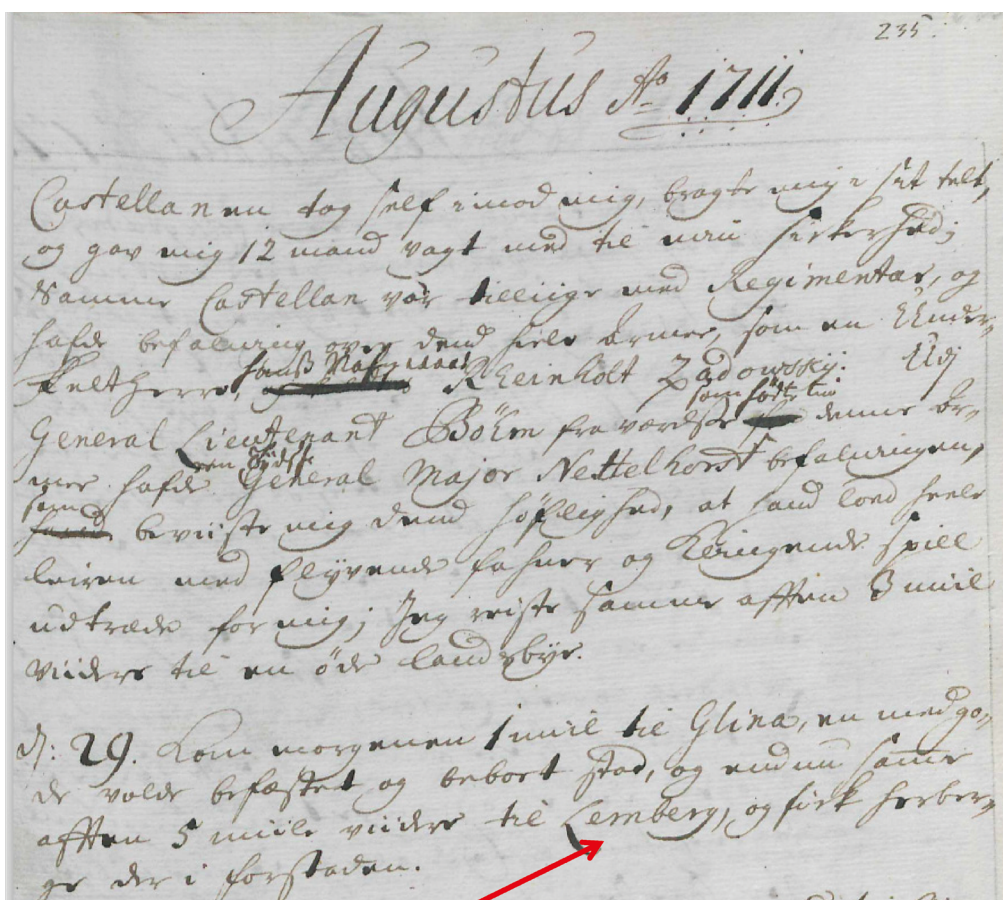 235.
Augustus Ao 1711.
Castellanen tog self imod mig, bragte mig i sit telt,
og gav mig 12 mand vagt med til min sickerhed;
Samme Castellan var tilliige med Regimentar, og
hafde befalning over dend hiele Armee, som en Under-
feltherre, Rheinholt Zadowskij. Udj
som
General Lieutenant Böhm fraværelse denne Ar-
en Tydsk
mee hafde General Major Nettelhorst befalningen,
som
hand beviiste mig dend höflighed, at hand loed heele
leiren med flyvende fahner og klingende spill
udtræde for mig; Jeg reiste samme afften 3 miil
viidere til en öde landsbye.
d: 29. kom morgenen 1 miil til Glina, en med go-
de volde befæstet og beboet stad, og endnu samme
afften 5 miile viidere til Lemberg, og fick herber-
ge der i forstaden.